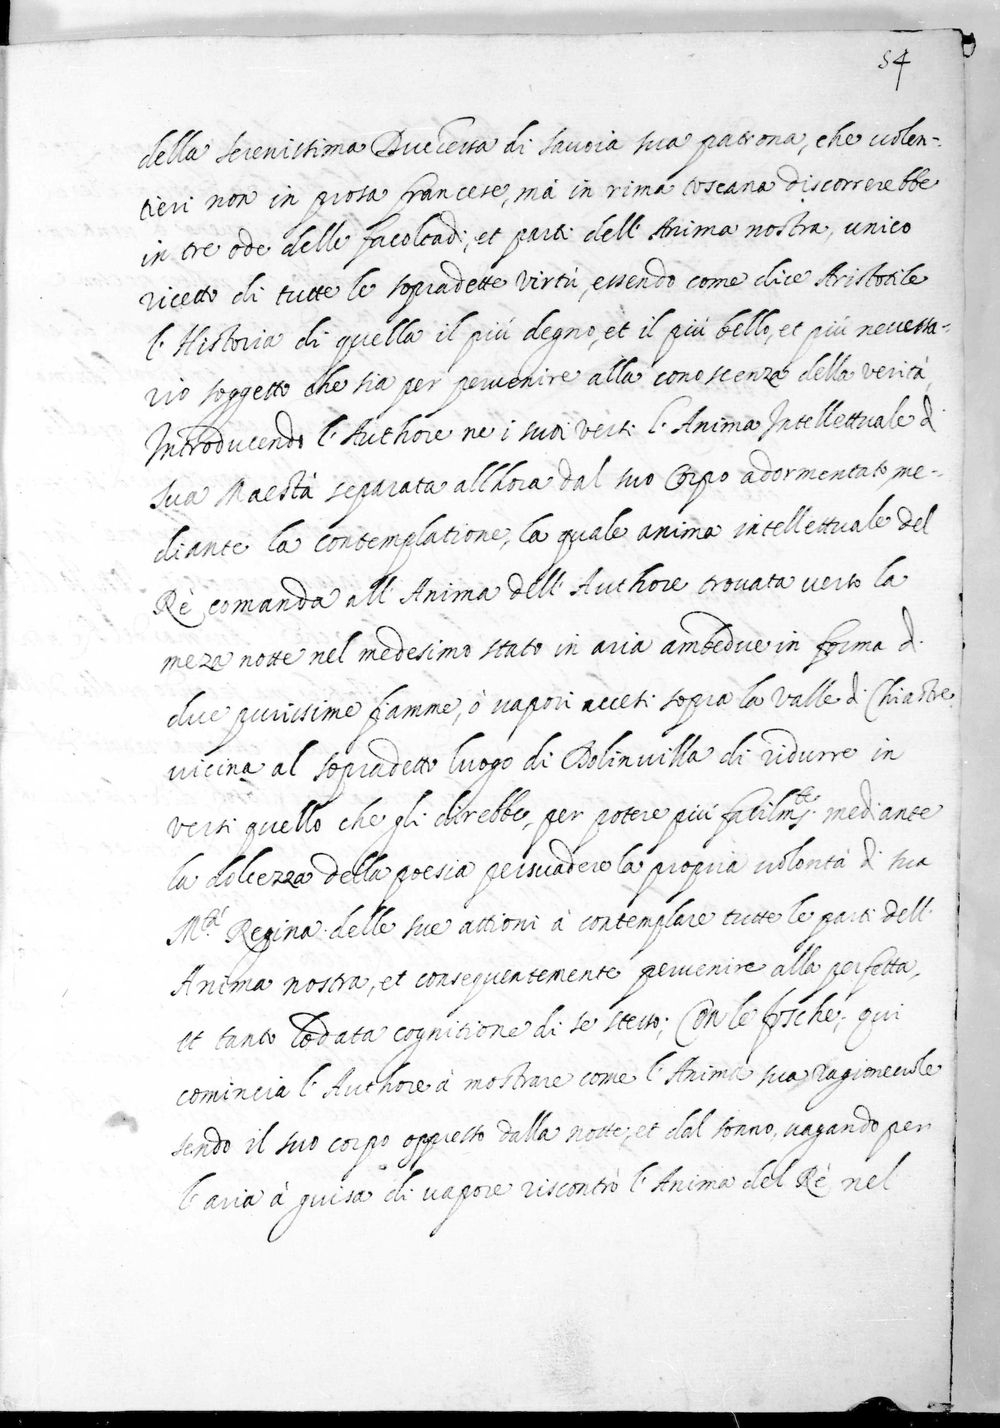 54
della serenissima Duccessa di sauoia sua patrona, che uolen-
tieri non in prosa francese, mà in rima toscana discorrerebbe
in tre ode delle facoltadi, et parti dell' Anima nostra, unico
ricetto di tutte le sopradette virtù, essendo come dice Aristotile
l' Historia di quella il più degno, et il più bello, et più necessa-
rio soggetto che sia per peruenire alla conoscenza della verità,
Introducendo l' Authore ne i suoi versi l' Anima Intellettuale di
sua Maestà separata allhora dal suo Corpo adormentato me-
diante la contemplatione, la quale anima intellettuale del
Rè comanda all' Anima dell' Authore trouata verso la
meza notte nel medesimo stato in aria ambedue in forma di
due purissime fiamme, ò vapori accesi sopra la Valle di Chiastre,
vicina al sopradetto luogo di Dolinuilla di ridurre in
versi quello che gli direbbe, per potere più facilm.te mediante
la dolcezza della poesia persuadere la propria uolontà di sua
M.tà Regina delle sue attioni à contemplare tutte le parti dell'
Anima nostra, et conseguentemente peruenire alla perfetta,
et tanto lodata cognitione di se stesso; Con le fosche; qui
comincia l' Authore à mostrare come l' Anima sua ragioneuole
sendo il suo corpo oppresso dalla notte, et dal sonno, uagando per
l' aria à guisa di uapore riscontrò l' Anima del Rè nel